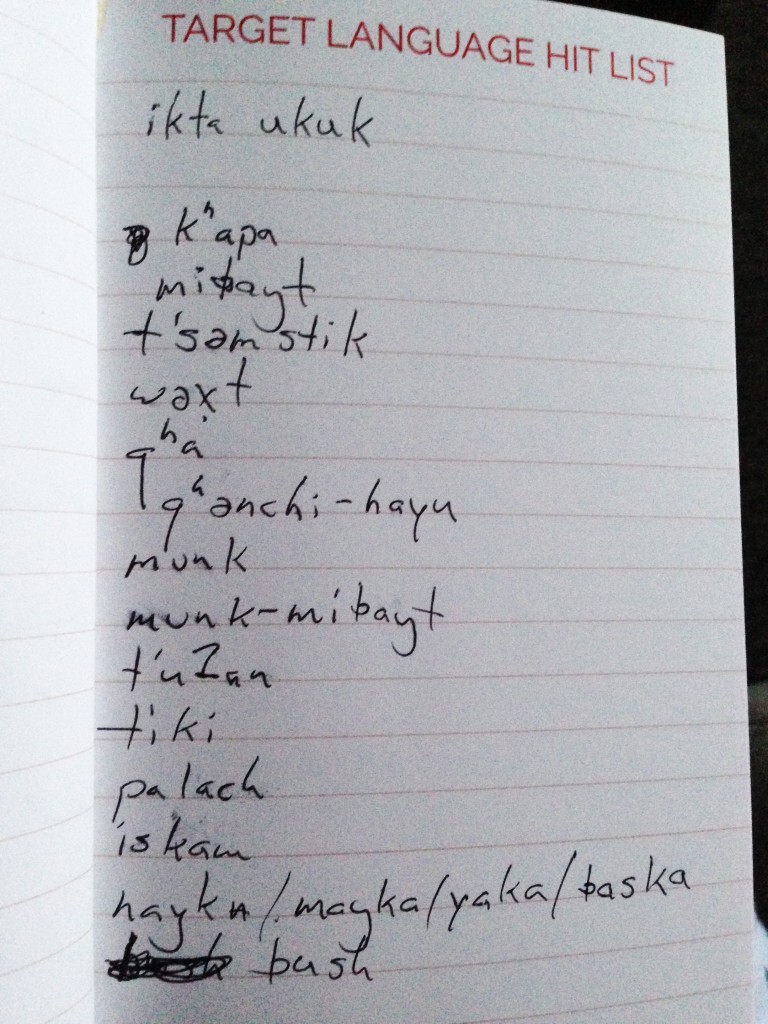 TARGET LANGUAGE HIT LIST
ikta ukuk
kʰapa
miɬayt
t'səm stik
wəxt
qʰá
qʰənchi-hayu
munk
munk-miɬayt
t'uʔan
tiki
palach
iskam
nayka/mayka/yaka/ɬaska
bush